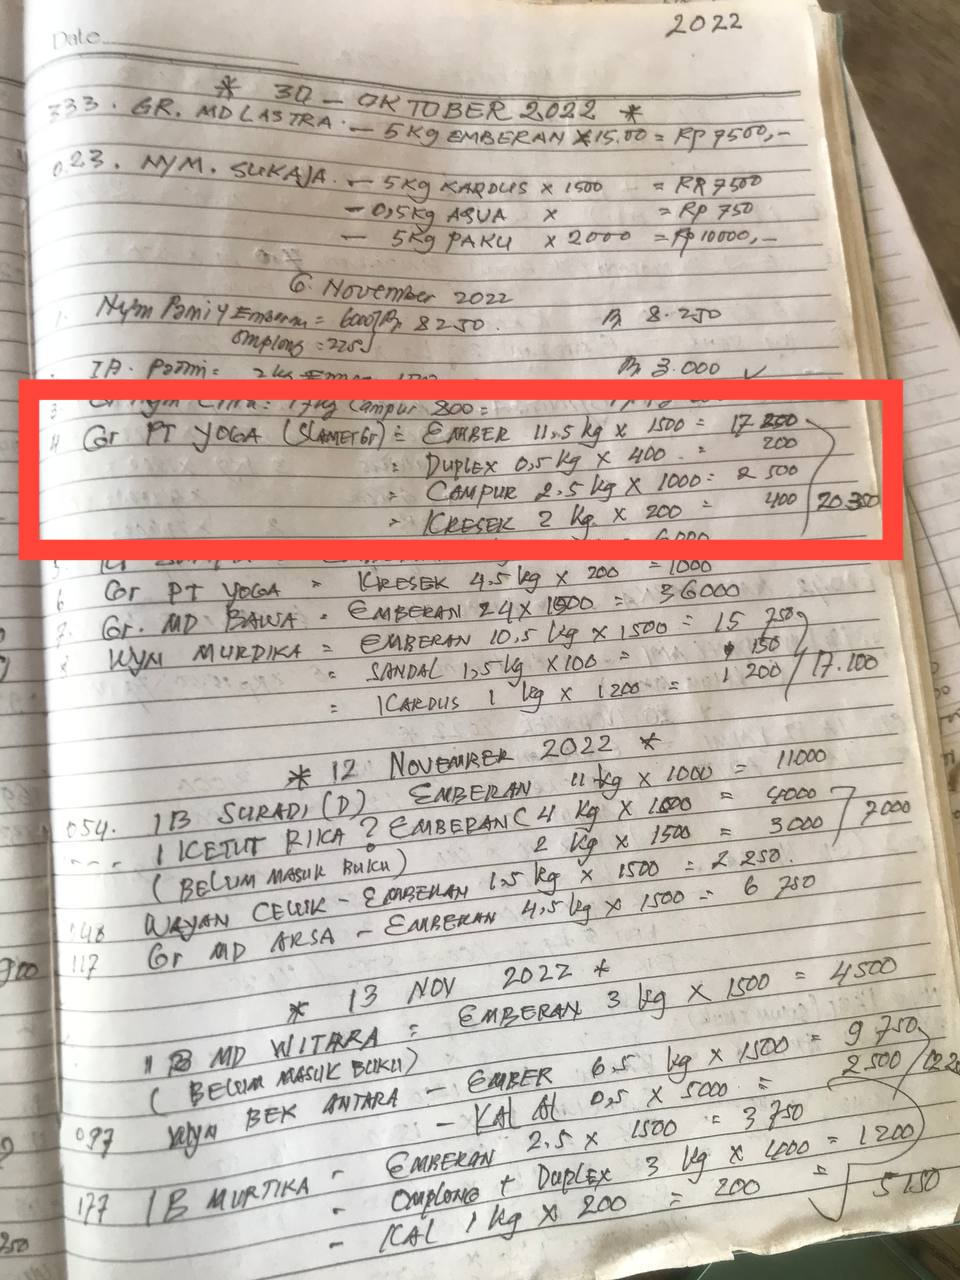 Date
2022
* 30 - OKTOBER 2022 *
333. GR. MD LASTRA. - 5 Kg EMBERAN x 15.00 = Rp 7500,-
023. NYM. SUKAJA. - 5 Kg KARDUS x 1500 = Rp 7500
- 0,5 Kg AQUA x = Rp 750
- 5 Kg PAKU x 2000 = Rp 10000,-
6 November 2022
1. Nym Pani y Emberan = 6000 Rp 8250. Rp 8.250
Omplong = 2250
IB. = 2 kg Rp 3.000 ✓
3 Gr Nym = 17 kg Campur 800 =
4 Gr PT YOGA (SLAMET Gr) = EMBER 11,5 kg x 1500 = 17 250
= DUPLEX 0,5 kg x 400 = 200
= CAMPUR 2.5 kg x 1000 = 2 500
= KRESEK 2 kg x 200 = 400 20.350
5
6 Gr PT YOGA = KRESEK 4,5 kg x 200 = 1000
7. Gr. MD BAWA = EMBERAN 24 x 1500 = 36000
8 WYM MURDIKA = EMBERAN 10,5 kg x 1500 = 15 750
= SANDAL 1,5 kg x 100 = 150
= KARDUS 1 kg x 1200 = 1 200 17.100
* 12 NOVEMBER 2022 *
054. IB SURADI (D) EMBERAN 11 kg x 1000 = 11000
---- I KETUT RIKA ? EMBERAN ( 4 kg x 1000 = 4000
(BELUM MASUK BUKU) 2 kg x 1500 = 3000 7000
148 WAYAN CELUK - EMBERAN 1,5 kg x 1500 = 2 250.
117 Gr MD ARSA - EMBERAN 4,5 kg x 1500 = 6 750
* 13 NOV 2022 *
" B MD WITARA = EMBERAN 3 kg x 1500 = 4500
(BELUM MASUK BUKU)
087 WYM BEK ANTARA - EMBER 6,5 kg x 1500 = 9 750
- KAL Al 0,5 x 5000 = 2.500
177 IB MURTIKA - EMBERAN 2.5 x 1500 = 3 750
- OMPLONG + DUPLEX 3 kg x 400 = 1200
- KAL 1 kg x 200 = 200 = 5150